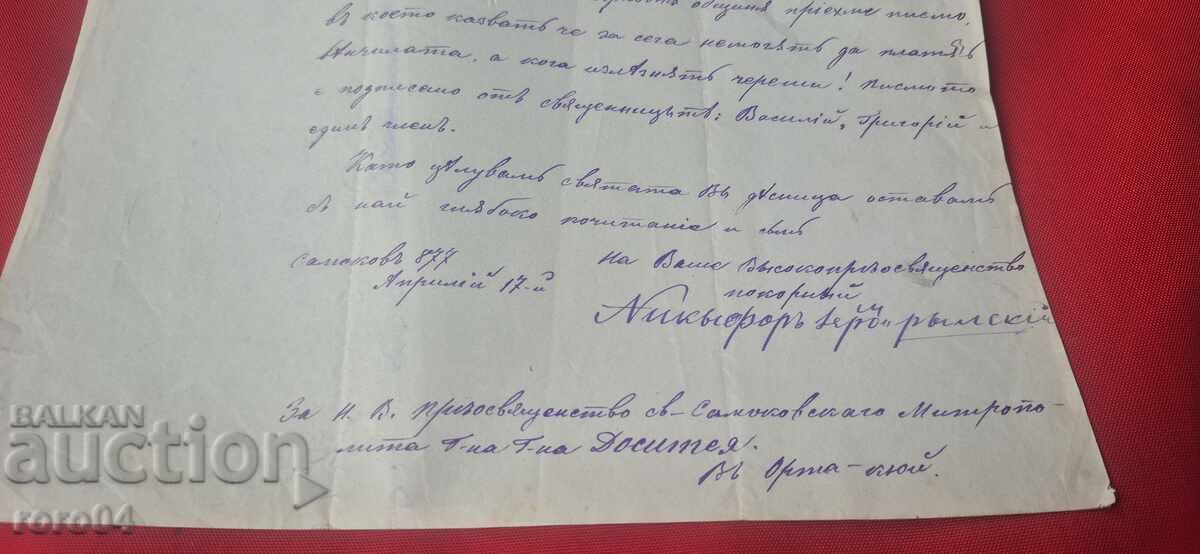 община пріехме писмо,
въ което казватъ че за сега немогѫтъ да платѭтъ
Анчилата, а кога излѣзнѫтъ череши! Писмото
е подписано отъ священницытѣ: Василій, Григорій и
единъ членъ.
Като цѣлувамъ святата Ви дѣсница оставамъ
съ най глѫбоко почитаніе и
Самоковъ 877
Априлій 17-й
На Ваше Высокопрѣосвященство
покорный
Никыфоръ рылскій
За Н. В. Прѣосвященство св-Самоковскаго Митропо-
лита Г-на Г-на Доситея.
Въ Орта-кюй.
BALKAN
auction
roro04